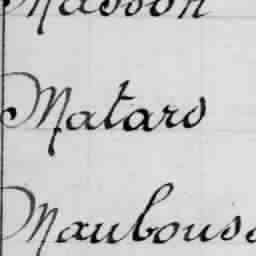 Masson
Matard
Maubouss